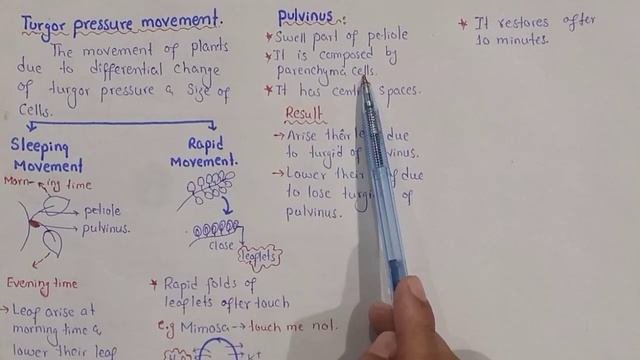 Turgor pressure movement.
The movement of plants
due to differential change
of turgor pressure & size of
cells.
Sleeping
Movement
Morn-ing time
petiole
pulvinus.
Evening time
→ Leaf arise at
morning time &
lower their leaf
Rapid
Movement.
close
leaflets
* Rapid folds of
leaflets after touch
e.g Mimosa → touch me not.
K+
Pulvinus:
* Swell part of petiole
* It is composed by
parenchyma cells.
* It has spaces.
Result
→ Arise their due
to turgid of
→ Lower their due
to lose of
pulvinus.
* It restores after
10 minutes.